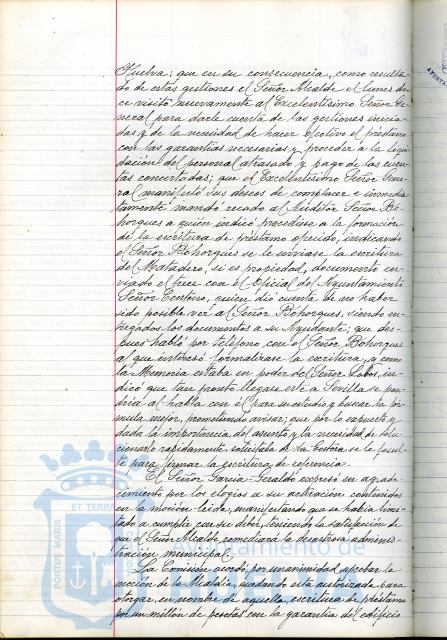 Huelva; que en su consecuencia, como resulta-
do de estas gestiones el Señor Alcalde el lunes do-
ce visitó nuevamente al Excelentísimo Señor Ge-
neral para darle cuenta de las gestiones inicia-
das y de la necesidad de hacer efectivo el préstamo
con las garantías necesarias y proceder a la liqui-
dación del personal atrasado y pago de las cuen-
tas concertadas; que el Excelentísimo Señor Gene-
ral manifestó sus deseos de complacer e inmedia-
tamente mandó recado al Auditor Señor Bo-
horques a quien indicó procediese a la formación
de la escritura de préstamo ofrecido, indicando
el Señor Bohorques se le enviase la escritura
del Matadero, si es propiedad, documento en-
viado el trece con el Oficial del Ayuntamiento
Señor Centeno, quien dió cuenta de no haber
sido posible ver al Señor Bohorques, siendo en-
tregados los documentos a su Ayudante; que des-
pués habló por teléfono con el Señor Bohorques
al que interesó formalizase la escritura, y como
la Memoria estaba en poder del Señor in-
dicó que tan pronto llegara este a Sevilla se pon-
dría al habla con él para su estudio y buscar la fór-
mula mejor, prometiendo avisar; que por lo expuesto y
dada la importancia del asunto y la necesidad de solu-
cionarlo rapidamente solicitaba de la Gestora se le facul-
te para firmar la escritura de referencia.
El Señor García Geraldo expresó su agrade-
cimiento por los elogios a su actuación contenidos
en la moción leida, manifestando que se había limi-
tado a cumplir con su deber, teniendo la satisfacción de
que el Señor Alcalde remediará la desastrosa adminis-
tración municipal.
La Comisión acordó por unanimidad aprobar la
moción de la Alcaldía, quedando esta autorizada para
otorgar, en nombre de aquella, escritura de préstamo
por un millón de pesetas con la garantía del edificio
PORTUS MARIS
ET TERRA